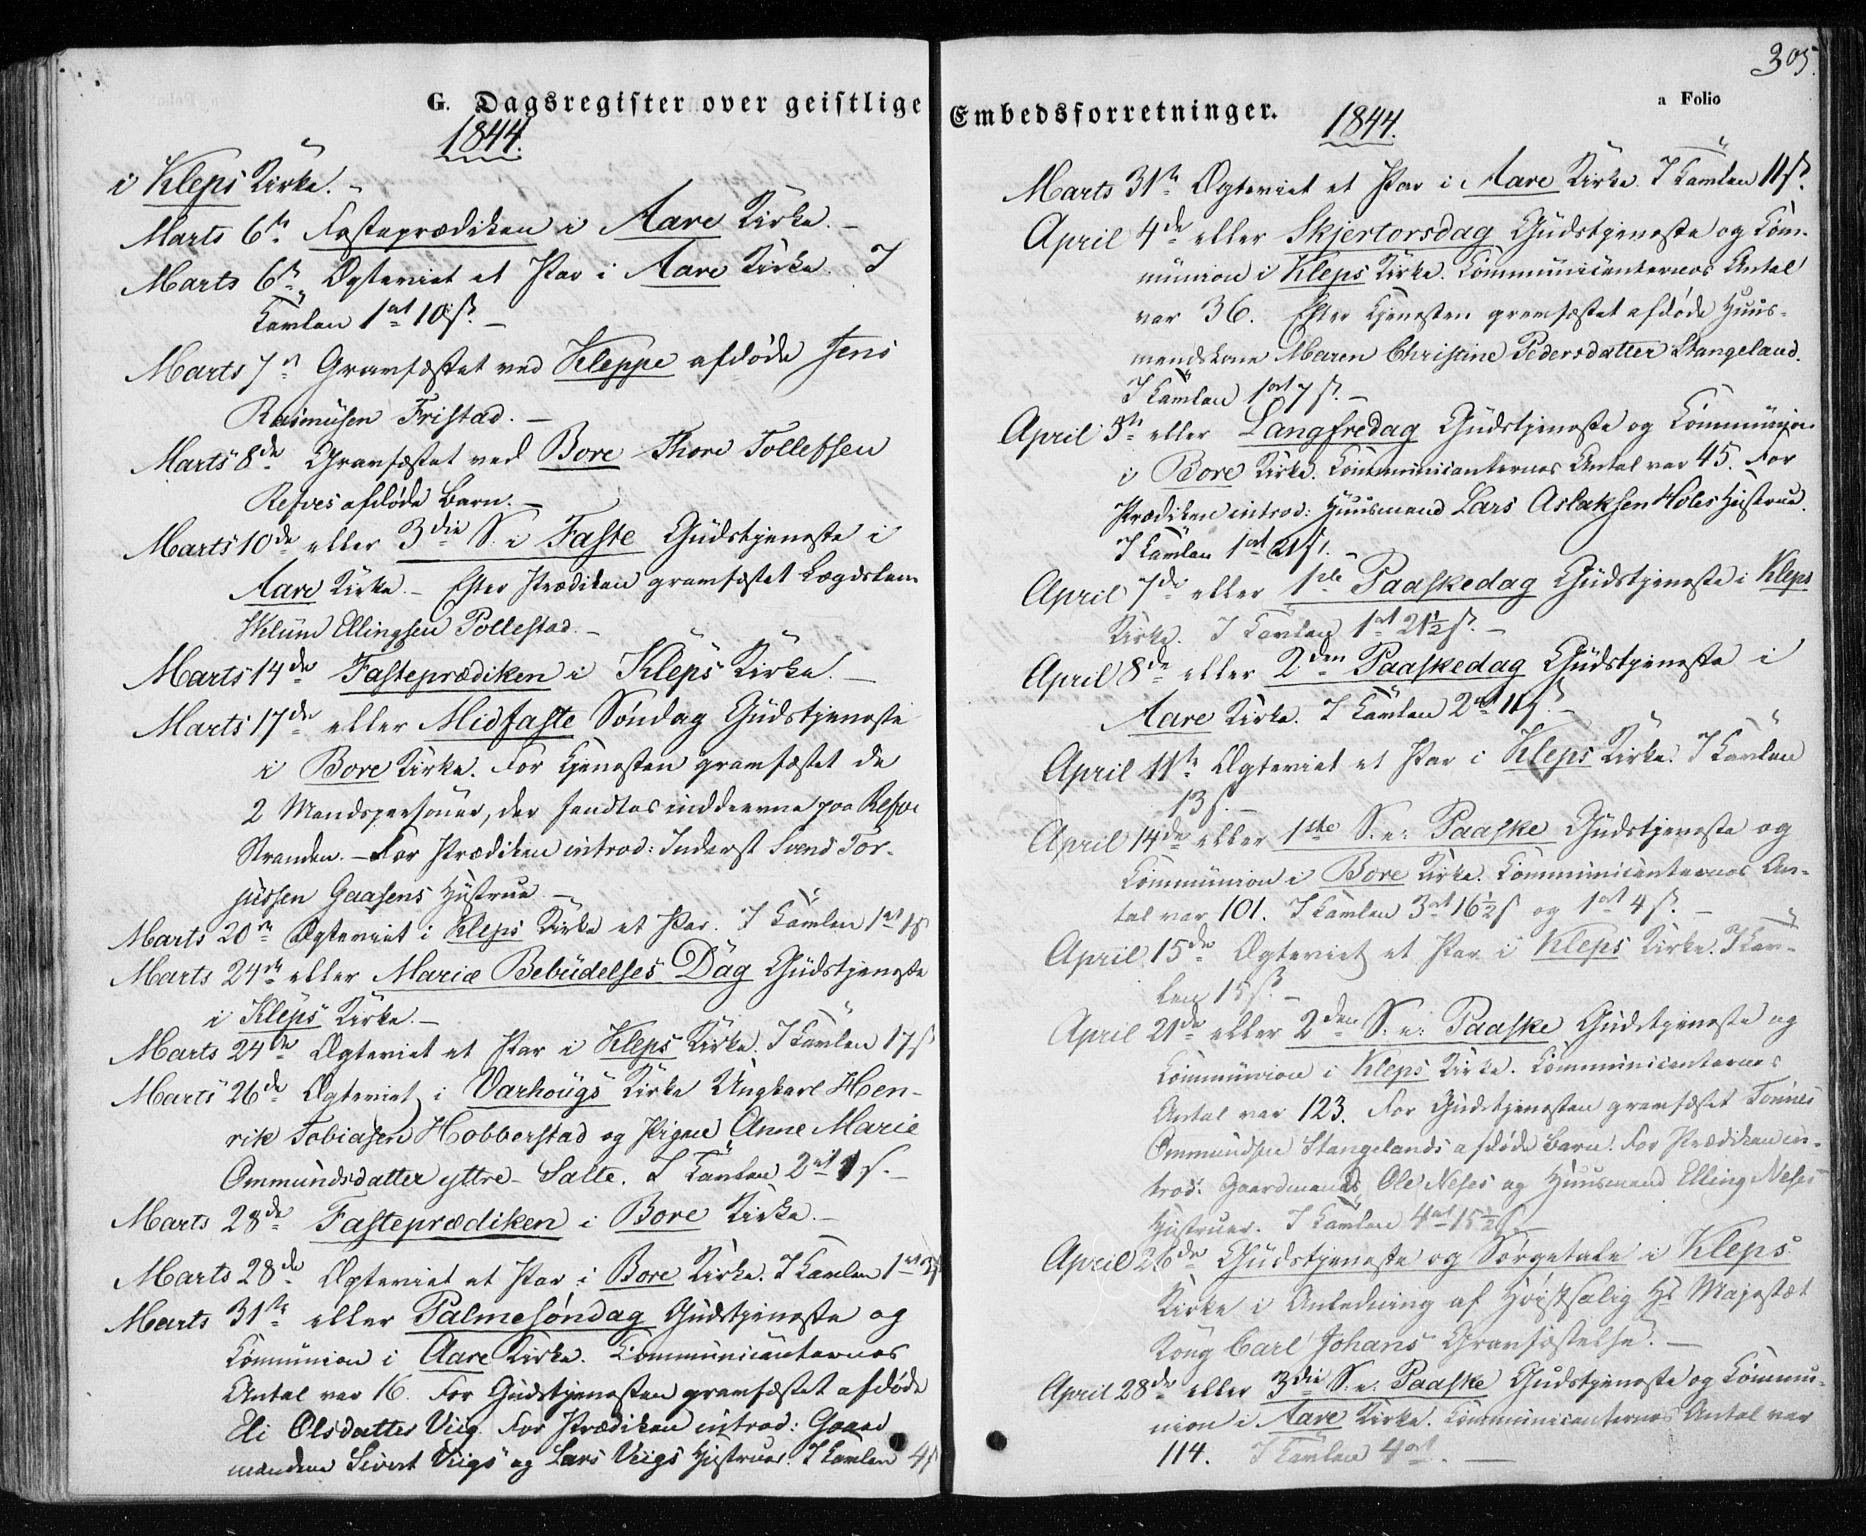 305.
G. Dagsregister over geistlige Embedsforretninger.
a Folio
1844.
i Kleps Kirke. -
Marts 6te Fasteprædiken i Aare Kirke. -
Marts 6te Ægteviet et Par i Aare Kirke. I
Tavlen 1 ort 10 s. -
Marts 7de Gravfæstet ved Kleppe afdøde Jens
Rasmusen Fristad. -
Marts 8de Gravfæstet ved Bore Thore Tollefsen
Refves afdøde Barn. -
Marts 10de eller 3die S. i Faste Gudstjeneste i
Aare Kirke. - Efter Prædiken gravfæstet Lægdslem
Ellingsen Pollestad. -
Marts 14de Fasteprædiken i Kleps Kirke. -
Marts 17de eller Midfaste Søndag Gudstjeneste
i Bore Kirke. Før Tjenesten gravfæstet de
2 Mandspersoner, der fandtes inddrevne paa Refve
Stranden. - Før Prædiken introd: Inderst Svend Tor-
jussen Gaasens Hustrue -
Marts 20de Ægteviet i Kleps Kirke et Par. I Tavlen 1 ort 1 s
Marts 24de eller Mariæ Bebudelses Dag Gudstjeneste
i Kleps Kirke. -
Marts 24de Ægteviet et Par i Kleps Kirke. I Tavlen 17 s
Marts 26de Ægteviet i Varhougs Kirke Ungkarl Hen-
rik Tobiasen Hobberstad og Pigen Anne Marie
Ommundsdatter yttre-Salte. I Tavlen 2 ort 1 s. -
Marts 28de Fasteprædiken i Bore Kirke. -
Marts 28de Ægteviet et Par i Bore Kirke. I Tavlen 1 ort 3 s
Marts 31te eller Palmesøndag Gudstjeneste og
Communion i Aare Kirke. Communicanternes
Antal var 16. Før Gudstjenesten gravfæstet afdøde
Eli Olsdatter Viig. Før Prædiken introd: Gaard
mændene Sivert Viigs og Lars Viigs Hustruer. I Tavlen 4 s
1844.
Marts 31te Ægteviet et Par i Aare Kirke. I Tavlen 11 s.
April 4de eller Skjertorsdag Gudstjeneste og Com-
munion i Kleps Kirke. Communicanternes Antal
var 36. Efter Tjenesten gravfæstet afdøde Huus-
mandskone Maren Christine Pedersdatter Stangeland.
I Tavlen 1 ort 7 s. -
April 5te eller Langfredag Gudstjeneste og Communion
i Bore Kirke. Communicanternes Antal var 45. Før
Prædiken introd: Huusmand Lars Aslaksen Holes Hustrue.
I Tavlen 1 ort 21 s. -
April 7de eller 1ste Paaskedag Gudstjeneste i Kleps
Kirke. I Tavlen 1 ort 21½ s. -
April 8de eller 2den Paaskedag Gudstjeneste i
Aare Kirke. I Tavlen 2 ort 11 s. -
April 11te Ægteviet et Par i Kleps Kirke. I Tavlen
13 s. -
April 14de eller 1ste S. e: Paaske Gudstjeneste og
Communion i Bore Kirke. Communicanternes An-
tal var 101. I Tavlen 3 ort 16½ s og 1 ort 4 s. -
April 15de Ægteviet et Par i Kleps Kirke. I Tav-
len 15 s. -
April 21de eller 2den S. e: Paaske Gudstjeneste og
Communion i Kleps Kirke. Communicanternes
Antal var 123. Før Gudstjenesten gravfæstet Tønnes
Ommundsen Stangelands afdøde Barn. Før Prædiken in-
trod: Gaardmands Ole Neses og Huusmand Elling Neses
Hustruer. I Tavlen 4 ort 15½ s. -
April 26de Gudstjeneste og Sørgetale i Kleps
Kirke i Anledning af Høistsalig Hs Majestæt
Kong Carl Johans Gravfæstelse. -
April 28de eller 3die S. e: Paaske Gudstjeneste og Commu-
nion i Aare Kirke. Communicanternes Antal var
114. I Tavlen 4 ort. -